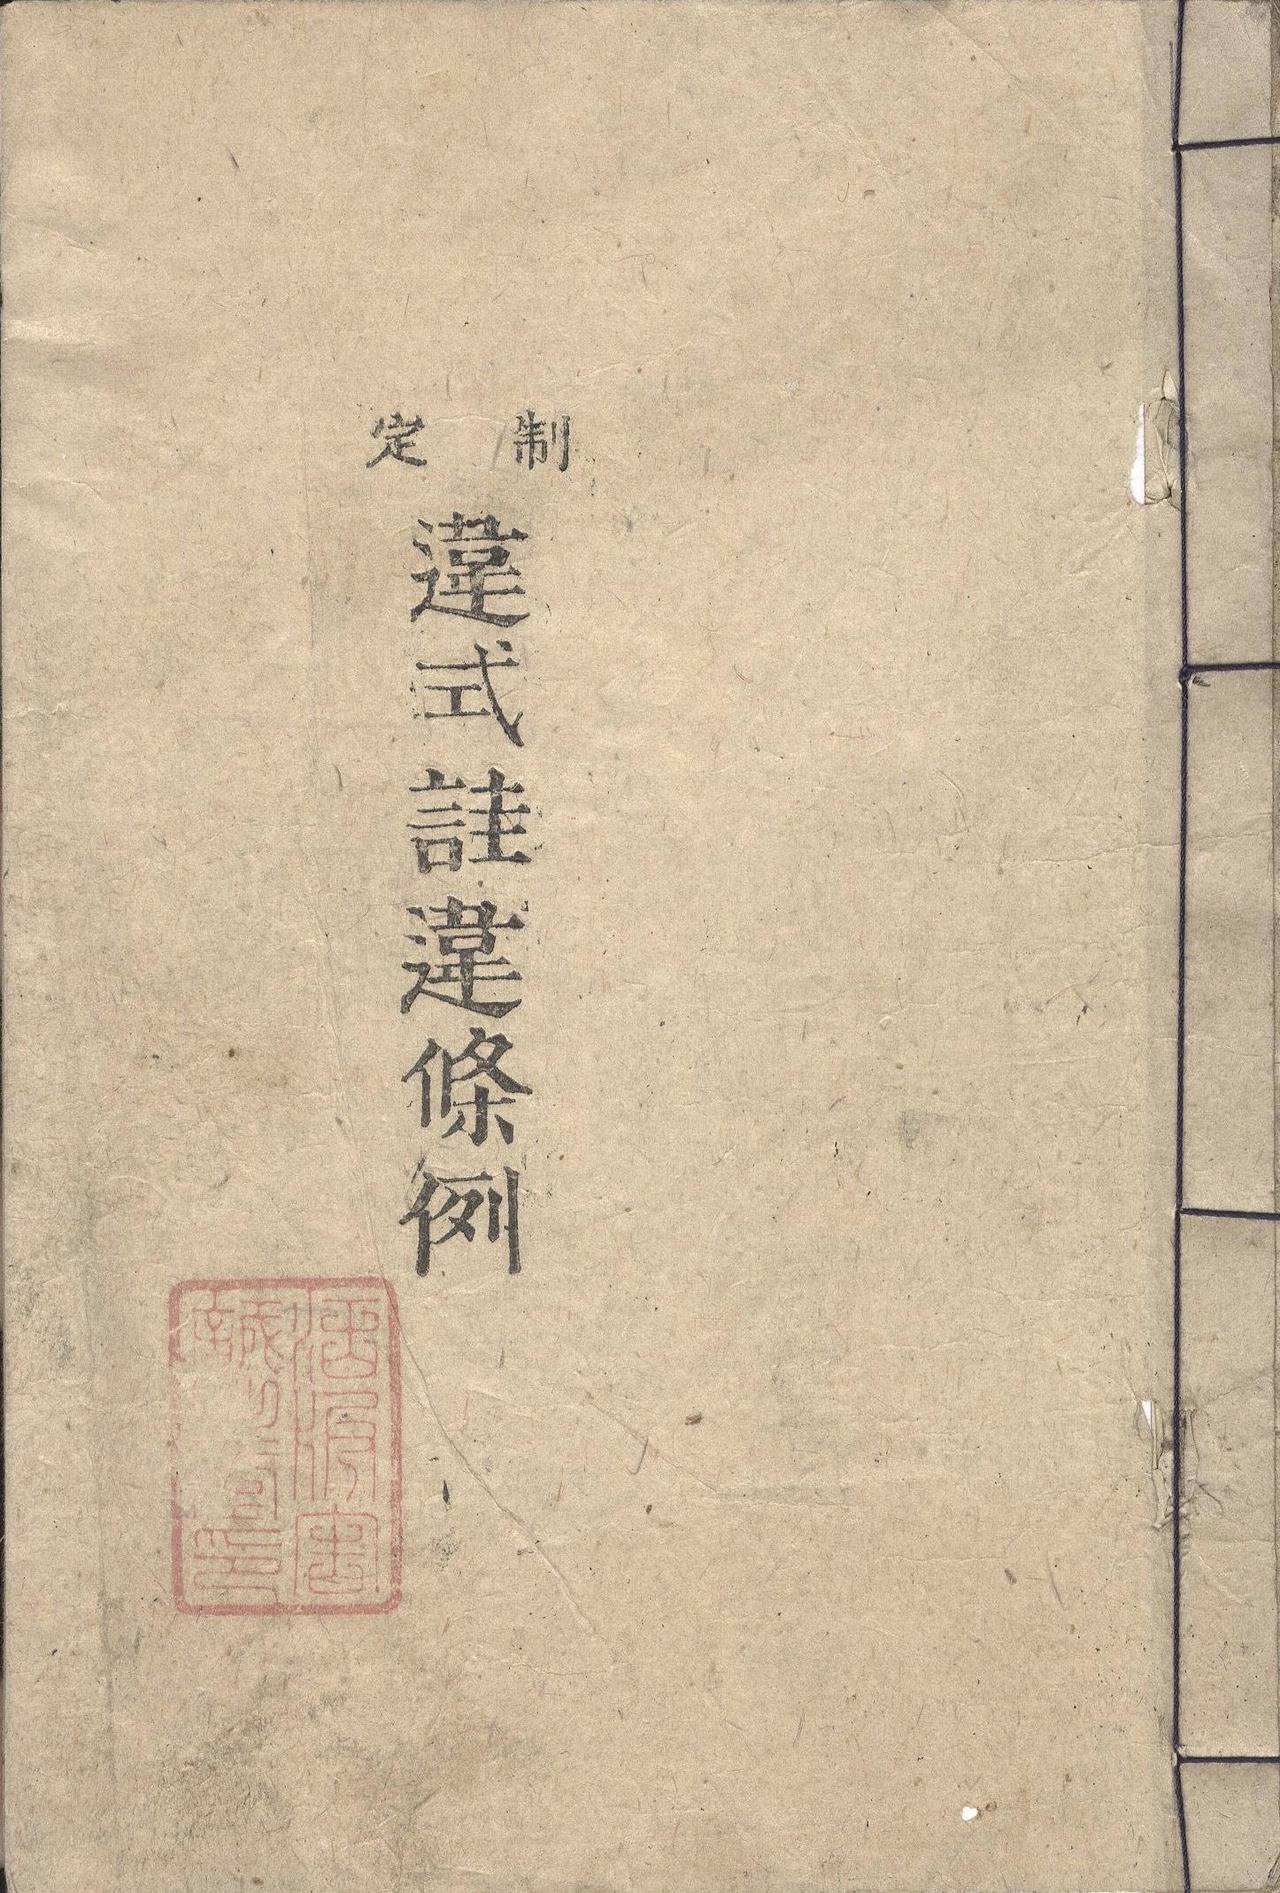 制定
違式詿違條例